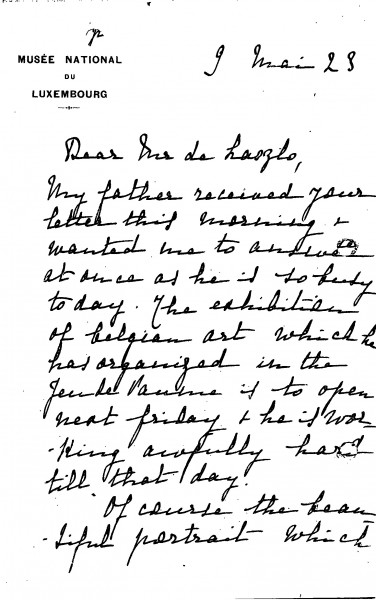 MUSÉE NATIONAL
DU
LUXEMBOURG
9 Mai 23
Dear Mr de Laszlo,
My father received your
letter this morning &
wanted me to answer
at once as he is so busy
today. The exhibition
of belgian art which he
has organized in the
Jeu de Paume is to open
next friday & he is wor
-king awfully hard
till that day.
Of course the beau
-tiful portrait which